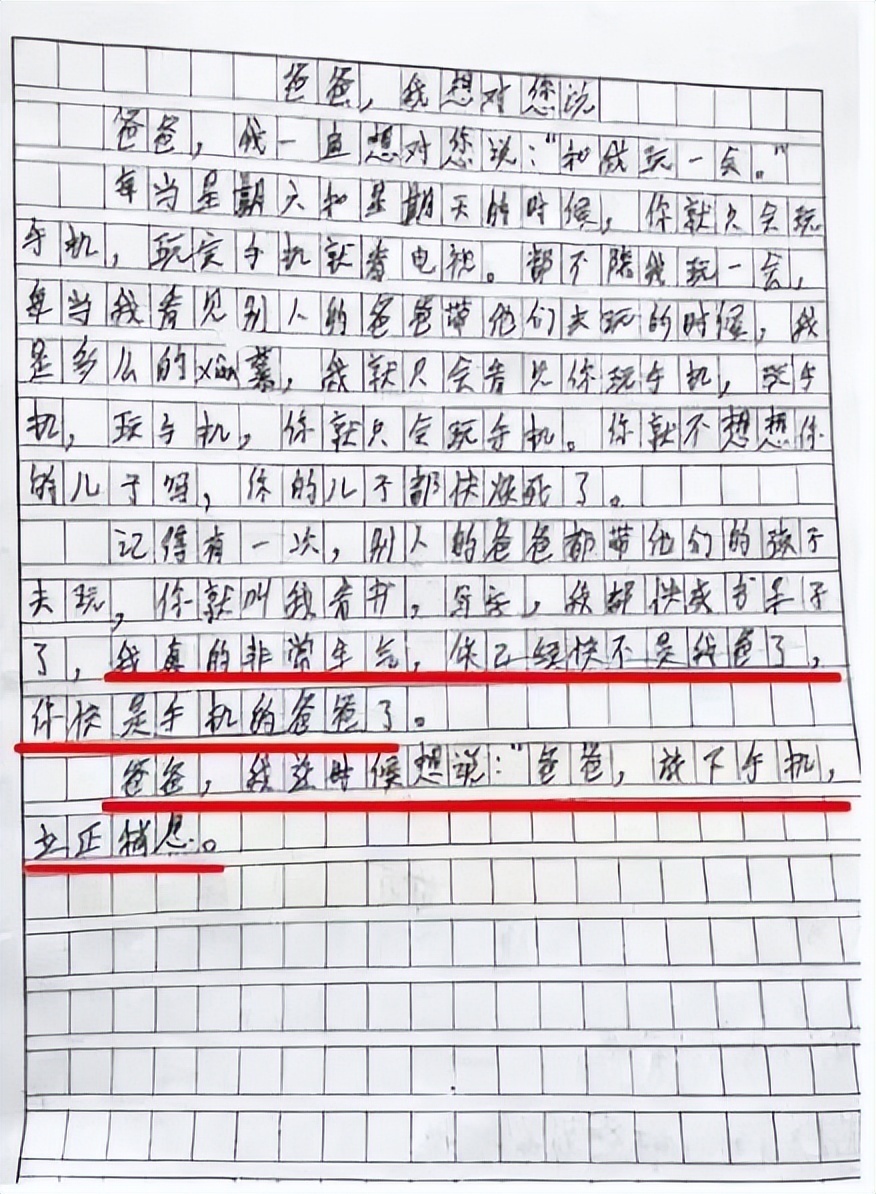 爸爸，我想对您说
爸爸，我一直想对您说：“和我玩一会。”
每当星期六和星期天的时候，你就只会玩
手机，玩完手机就看电视。都不陪我玩一会，
每当我看见别人的爸爸带他们去玩的时候，我
是多么的xiàn慕，我就只会看见你玩手机，玩手
机，玩手机，你就只会玩手机。你就不想想你
的儿子吗，你的儿子都快烦死了。
记得有一次，别人的爸爸都带他们的孩子
去玩，你就叫我看书，写字，我都快成书呆子
了，我真的非常生气，你已经快不是我爸了，
你快是手机的爸爸了。
爸爸，我这时候想说：“爸爸，放下手机，
立正稍息。